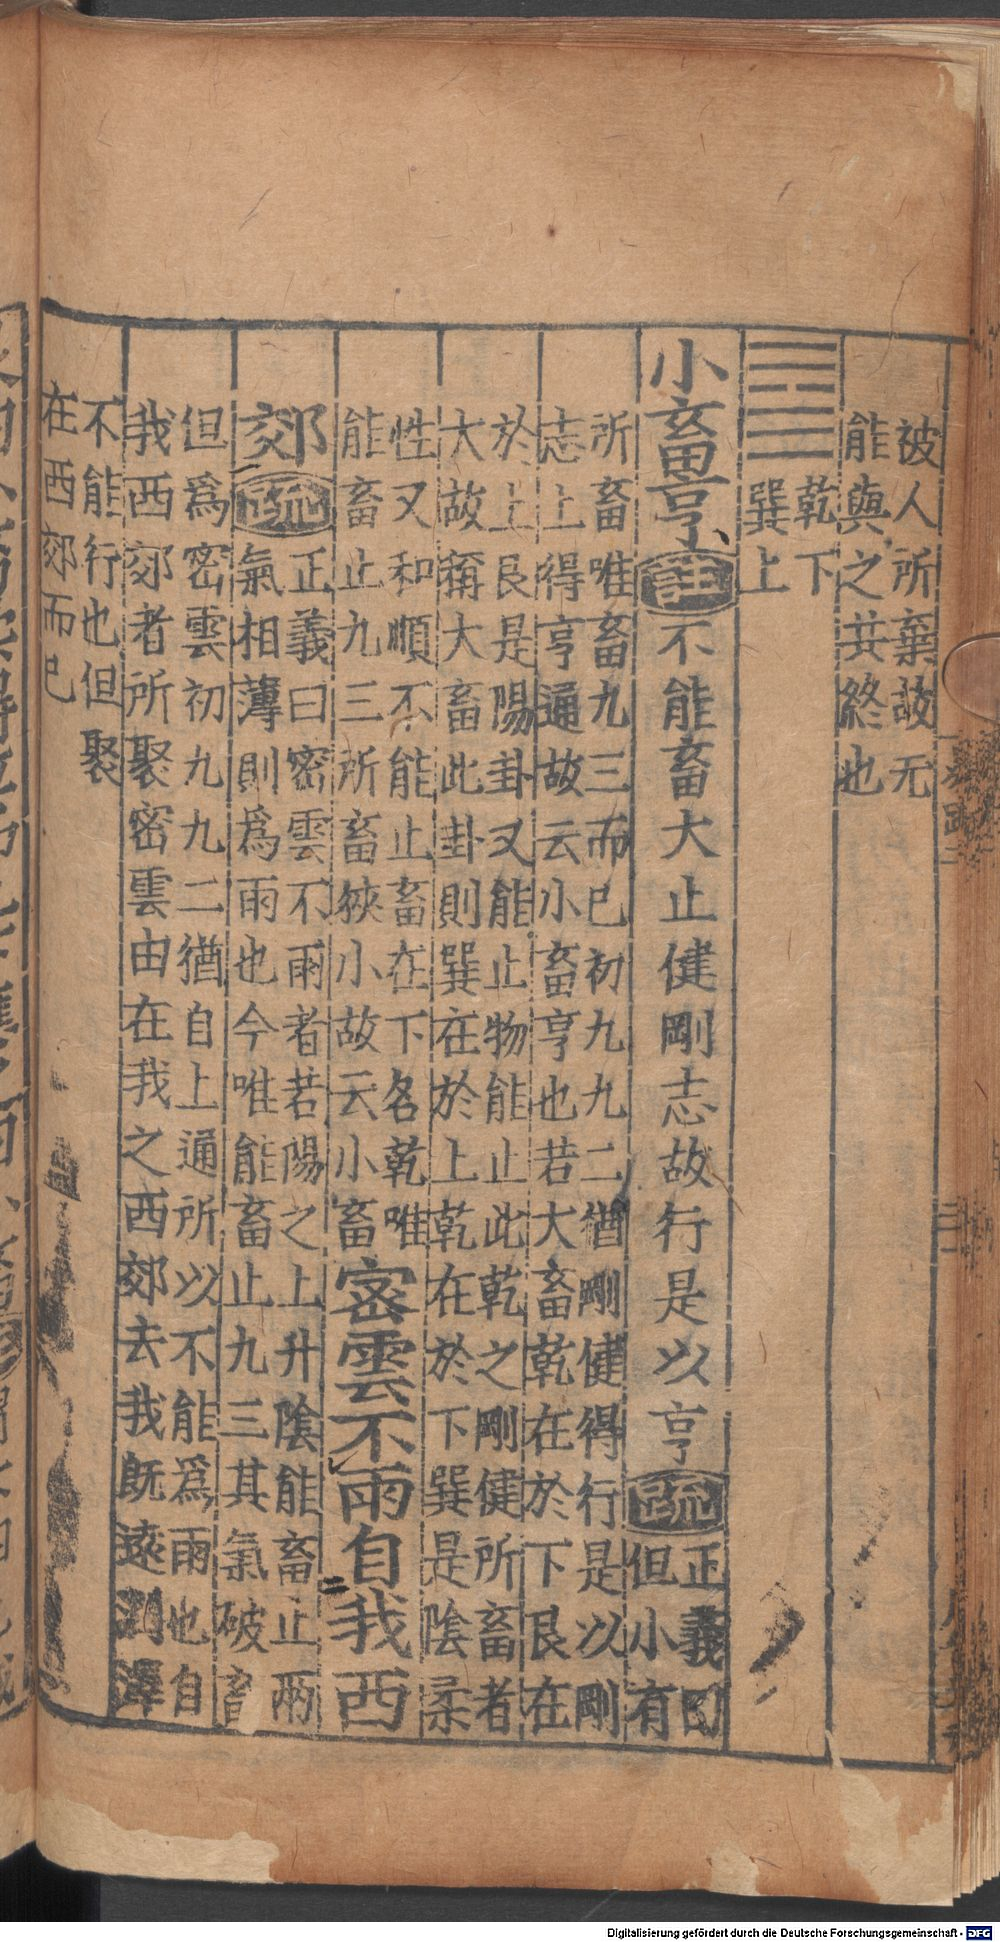 被人所棄故无
能與之共終也
乾下
巽上
小畜亨註不能畜大止健剛志故行是以亨疏正義曰
但小有
所畜唯畜九三而已初九九二猶剛健得行是以剛
志上得亨通故云小畜亨也若大畜乾在於下艮在
於上艮是陽卦又能止物能止此乾之剛健所畜者
大故稱大畜此卦則巽在於上乾在於下巽是陰柔
性又和順不能止畜在下名乾唯
能畜止九三所畜狹小故云小畜
密雲不雨自我西
郊疏正義曰密雲不雨者若陽之上升陰能畜止兩
氣相薄則爲雨也今唯能畜止九三其氣破畜
但爲密雲初九九二猶自上通所以不能爲雨也自
我西郊者所聚密雲由在我之西郊去我既遠潤澤
不能行也但聚
在西郊而已
Digitalisierung gefördert durch die Deutsche Forschungsgemeinschaft - DFG